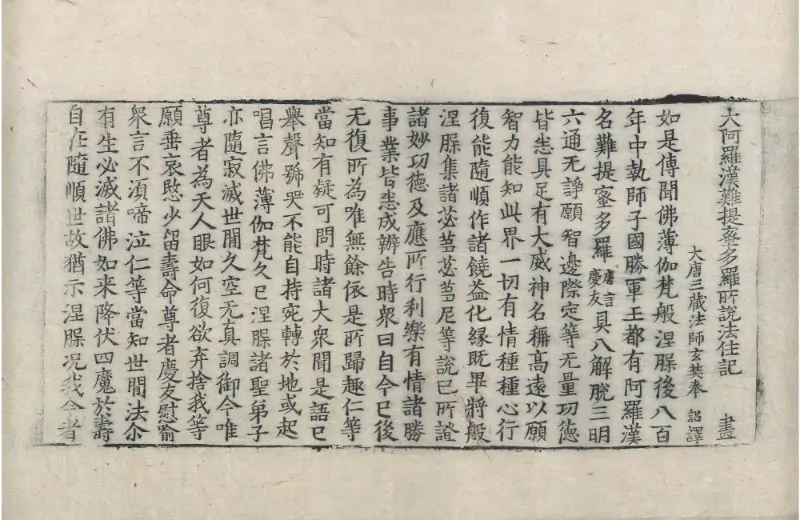 大阿羅漢難提蜜多羅所說法住記 盡
大唐三藏法師玄奘奉 詔譯
如是傳聞佛薄伽梵般涅槃後八百
年中執師子國勝軍王都有阿羅漢
名難提蜜多羅唐言慶友具八解脫三明
六通无諍願智邊際定等无量功德
皆悉具足有大威神名稱高遠以願
智力能知此界一切有情種種心行
復能隨順作諸饒益化緣既畢將般
涅槃集諸苾芻苾芻尼等說已所證
諸妙功德及應所行利樂有情諸勝
事業皆悉成辦告時衆曰自今已後
无復所為唯無餘依是所歸趣仁等
當知有疑可問時諸大衆聞是語已
舉聲號哭不能自持宛轉於地或起
唱言佛薄伽梵久已涅槃諸聖弟子
亦隨寂滅世間久空无真調御今唯
尊者為天人眼如何復欲弃捨我等
願垂哀愍少留壽命尊者慶友慰喻
衆言不湏啼泣仁等當知世間法尒
有生必滅諸佛如来降伏四魔於壽
自在隨順世故猶示涅槃况我今者